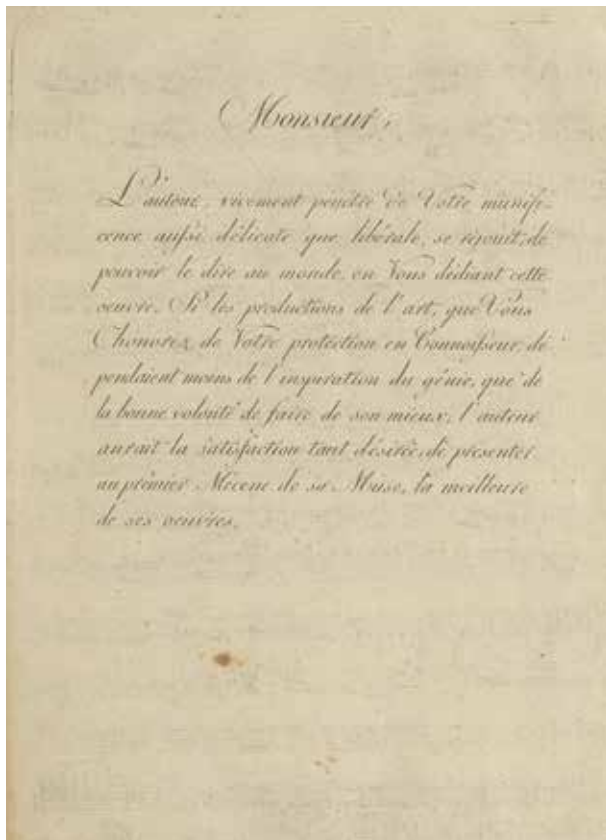 Monsieur,
L'auteur, vivement pénétré de Votre munifi-
cence aussi délicate que libérale, se réjouit, de
pouvoir le dire au monde, en Vous dédiant cette
oeuvre. Si les productions de l'art, que Vous
Honorez de Votre protection en Connoisseur, dé-
pendaient moins de l'inspiration du génie, que de
la bonne volonté de faire de son mieux, l'auteur
aurait la satisfaction tant désirée, de présenter
au prémier Mécene de sa Muse, la meilleure
de ses oeuvres.